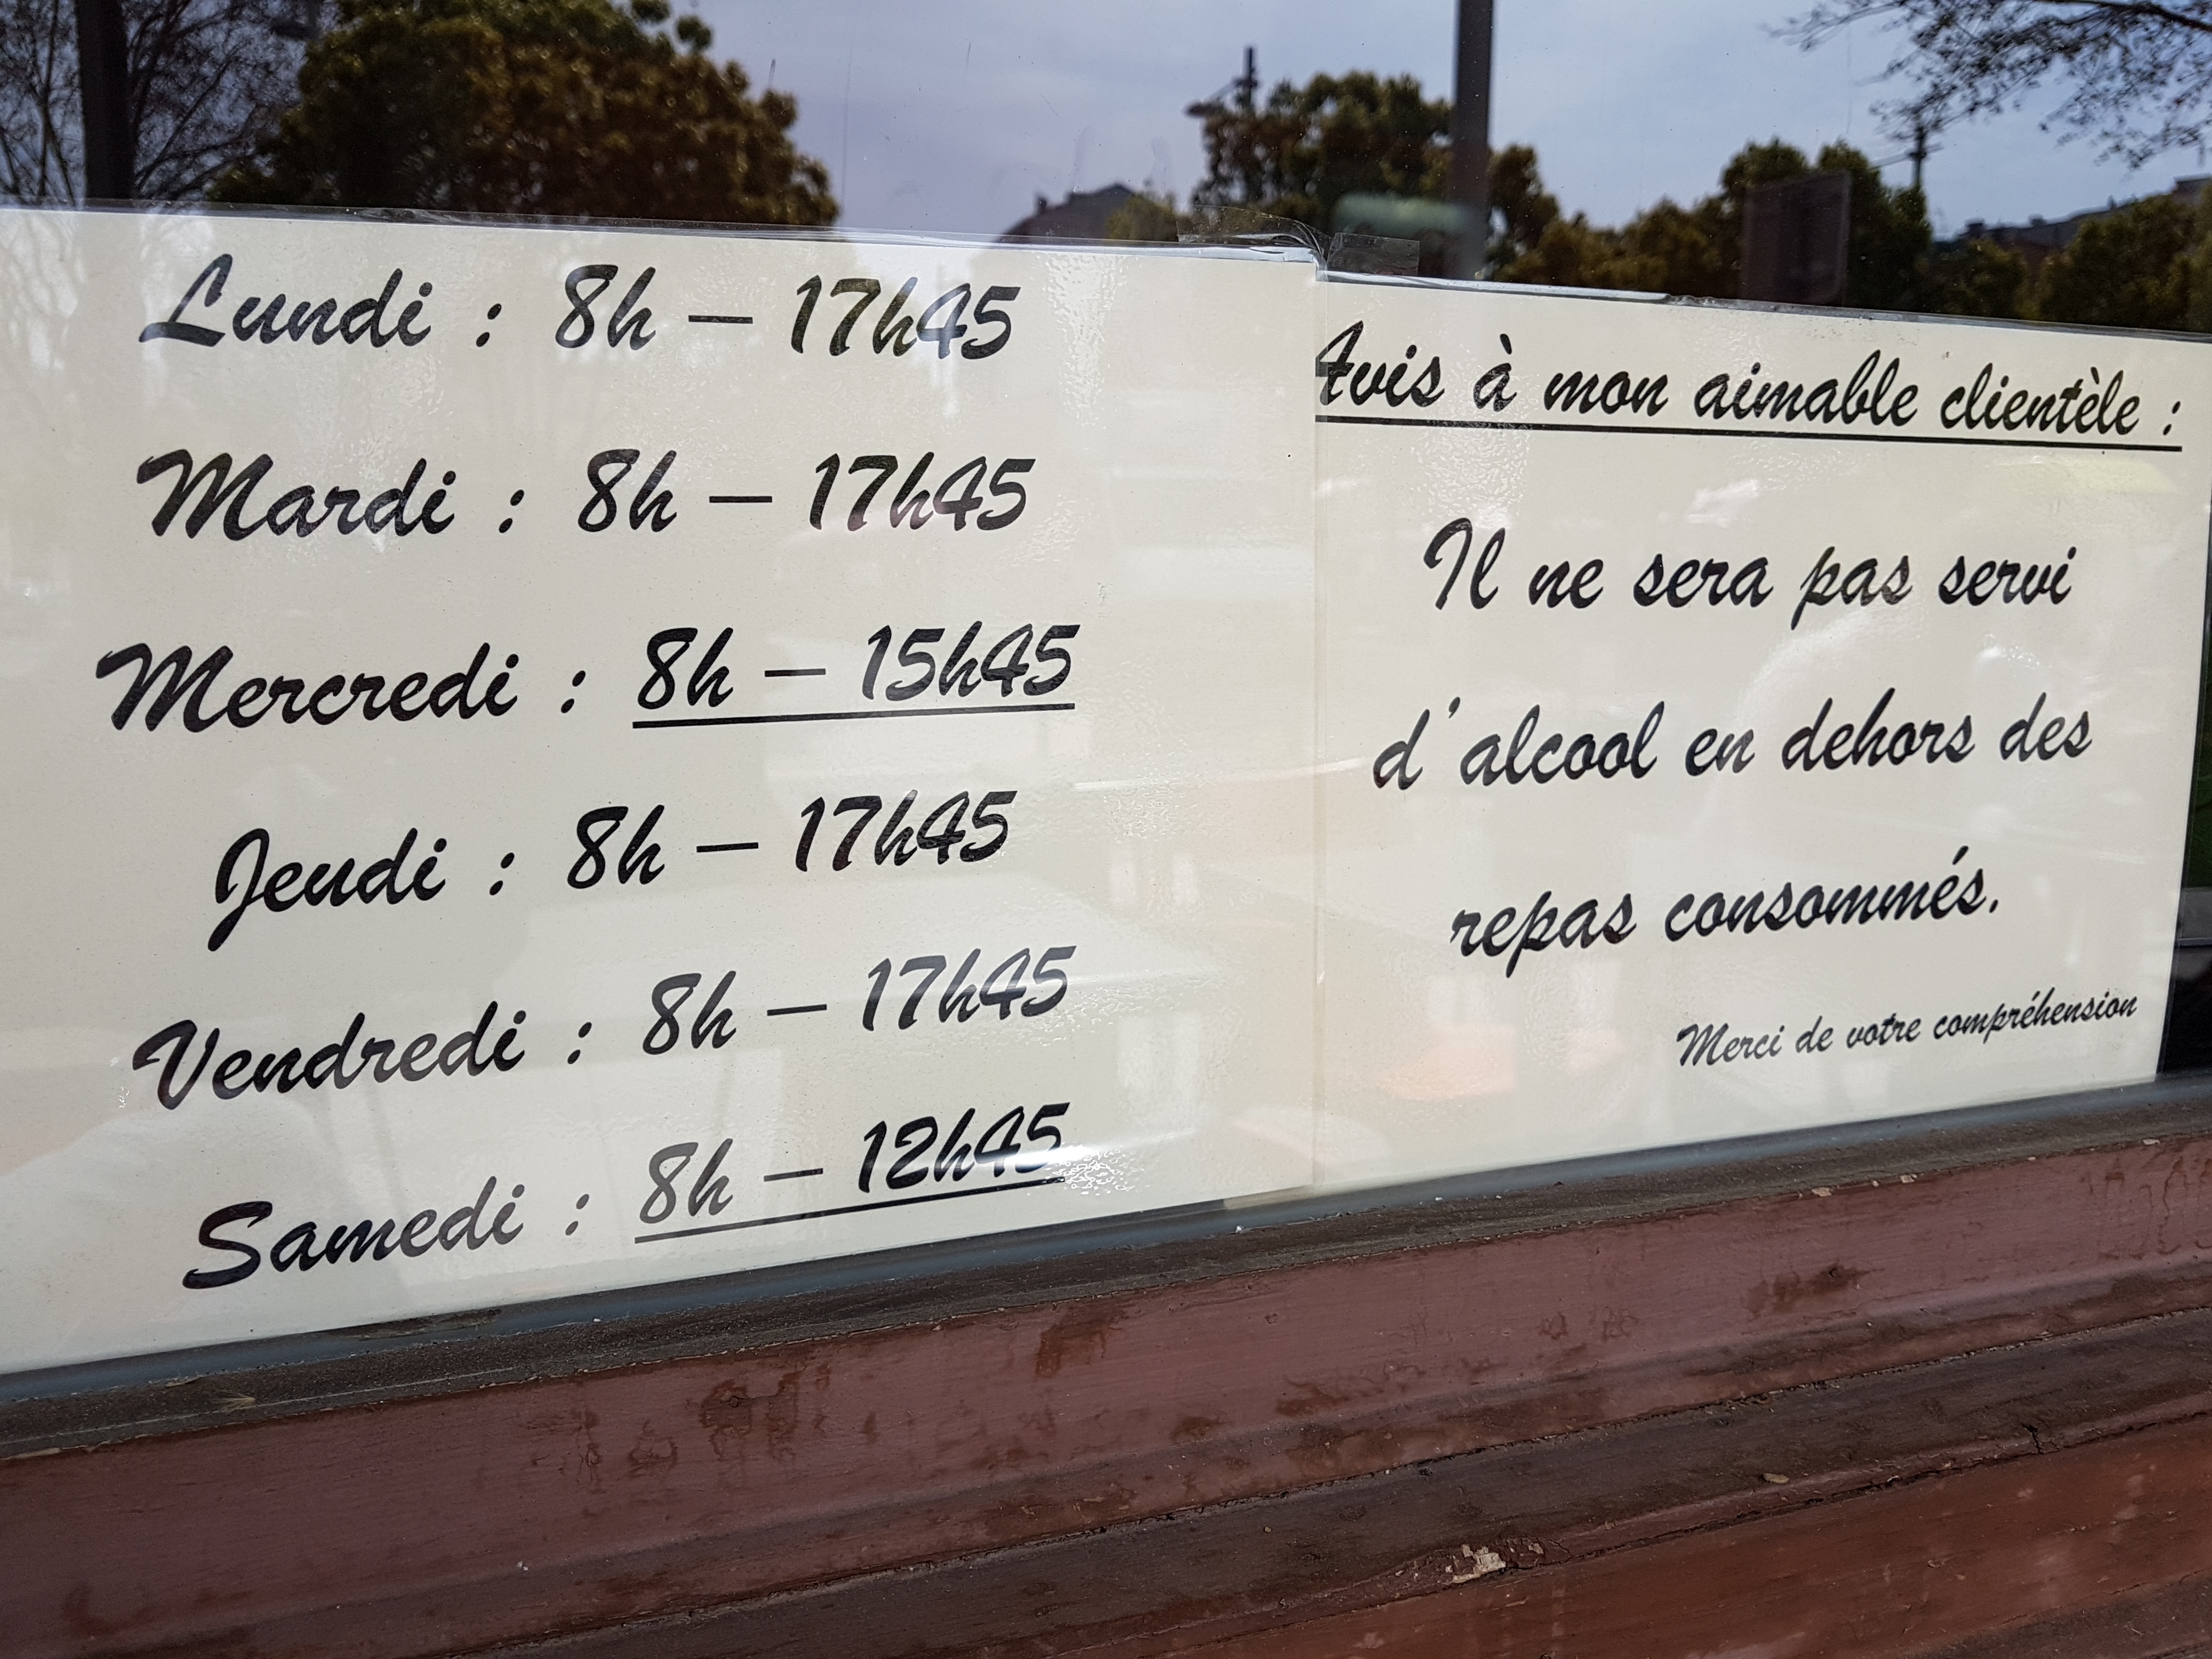 Lundi : 8h – 17h45
Mardi : 8h – 17h45
Mercredi : 8h – 15h45
Jeudi : 8h – 17h45
Vendredi : 8h – 17h45
Samedi : 8h – 12h45
Avis à mon aimable clientèle :
Il ne sera pas servi
d'alcool en dehors des
repas consommés.
Merci de votre compréhension